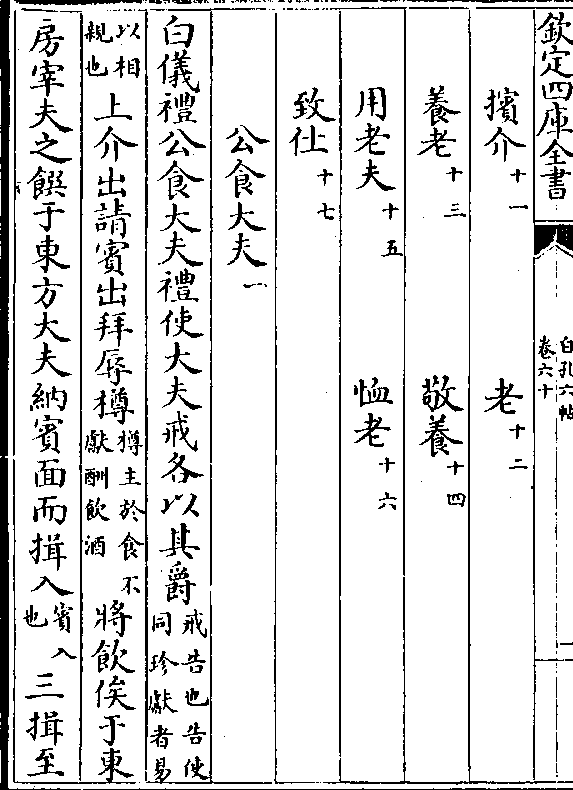 欽定四庫全書
白孔六帖
卷六十
擯介十一　老十二
養老十三　敬養十四
用老夫十五　恤老十六
致仕十七
公食大夫一
白儀禮公食大夫禮使大夫戒各以其爵戒告也告使同珍獻者易
以相親也上介出請賓出拜辱樽樽主於食不獻酬飲酒將飲俟于東
房宰夫之饌于東方大夫納賓面而揖入賓入也三揖至